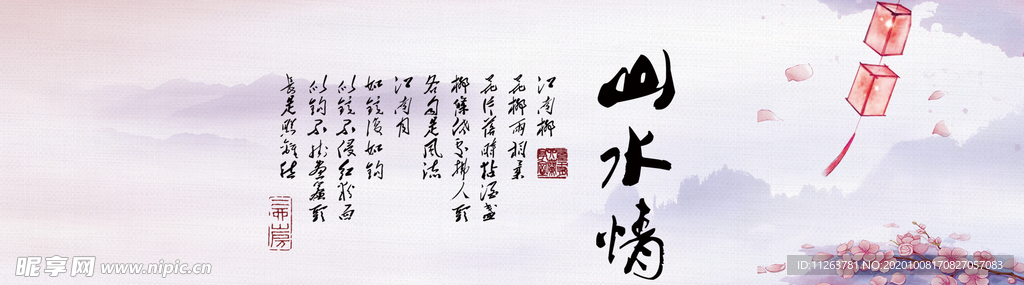 山水情
江南柳
花柳兩相柔
花片落時黏酒盞
柳條低處拂人頭
各自是風流
江南月
如鏡復如鈎
似鏡不侵紅粉面
似鈎不掛畫簾頭
長是照離愁
昵享网 www.nipic.cn
ID:11263781 NO:20201008170827057083